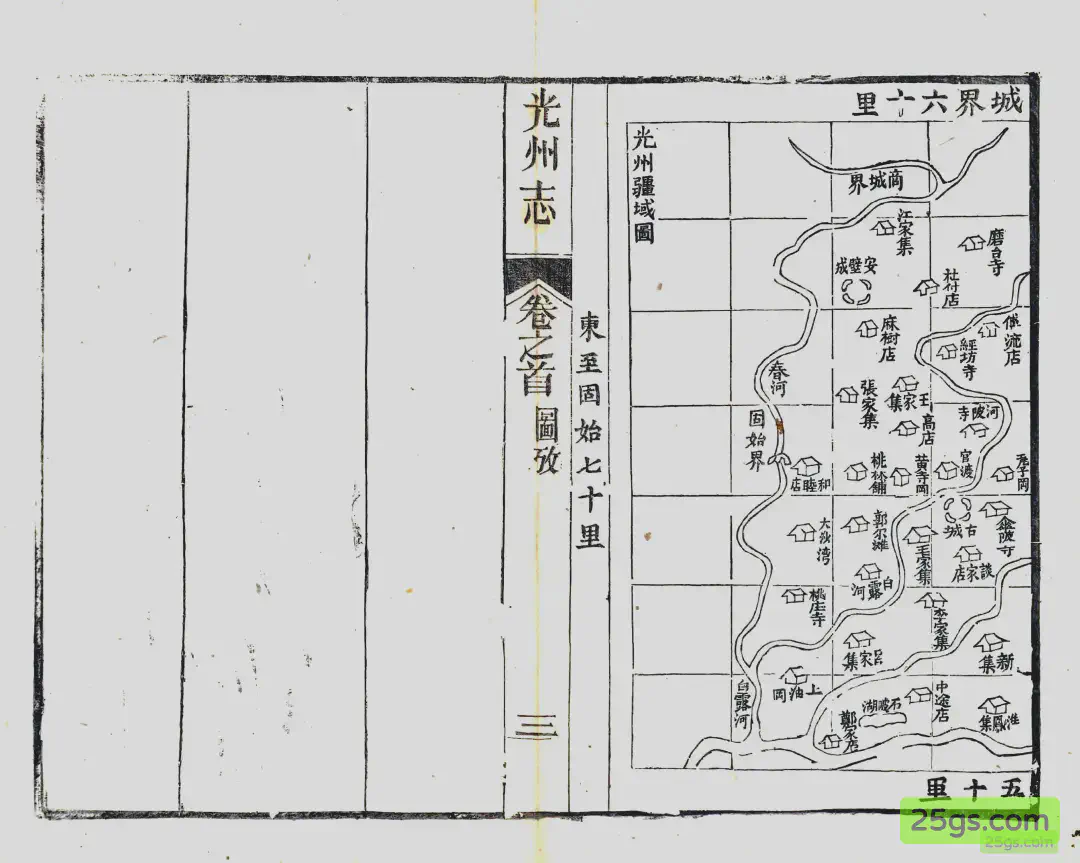 城界六十里
光州疆域圖
商城界
江家集
磨台寺
安壁城
杜付店
麻樹店
經坊寺
流店
春河
張家集
王家集
河陂寺
高店
固始界
和睦店
桃林鋪
黄寺岡
官渡
子岡
古城
大河湾
郭尔滩
王家集
陂寺
談家店
白露河
桃庄寺
李家集
呂家集
新集
上油岡
白露河
石陂湖
鄭家店
中途店
淮鳳集
五十里
東至固始七十里
光州志
卷之首
圖攷
三
25gs.com
25gs.com